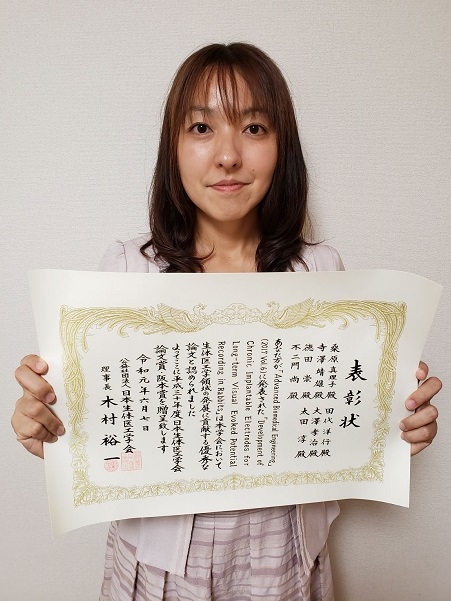 表彰状
桑原真理子殿 田代洋行殿
寺澤靖雄殿 大澤孝治殿
徳田崇殿 太田淳殿
不二門尚殿
あなた方が "Advanced Biomedical Engineering,"
(2017 Vol.6)に発表された "Development of
Chronic Implantable Electrodes for
Long-term Visual Evoked Potential
Recording in Rabbits,"は本学会において
生体医工学領域の発展に貢献する優秀な
論文と認められました
よってここに平成三十年度日本生体医工学会
論文賞 阪本賞を贈呈致します
令和元年六月七日
公益社団法人日本生体医工学会
理事長 木村裕一